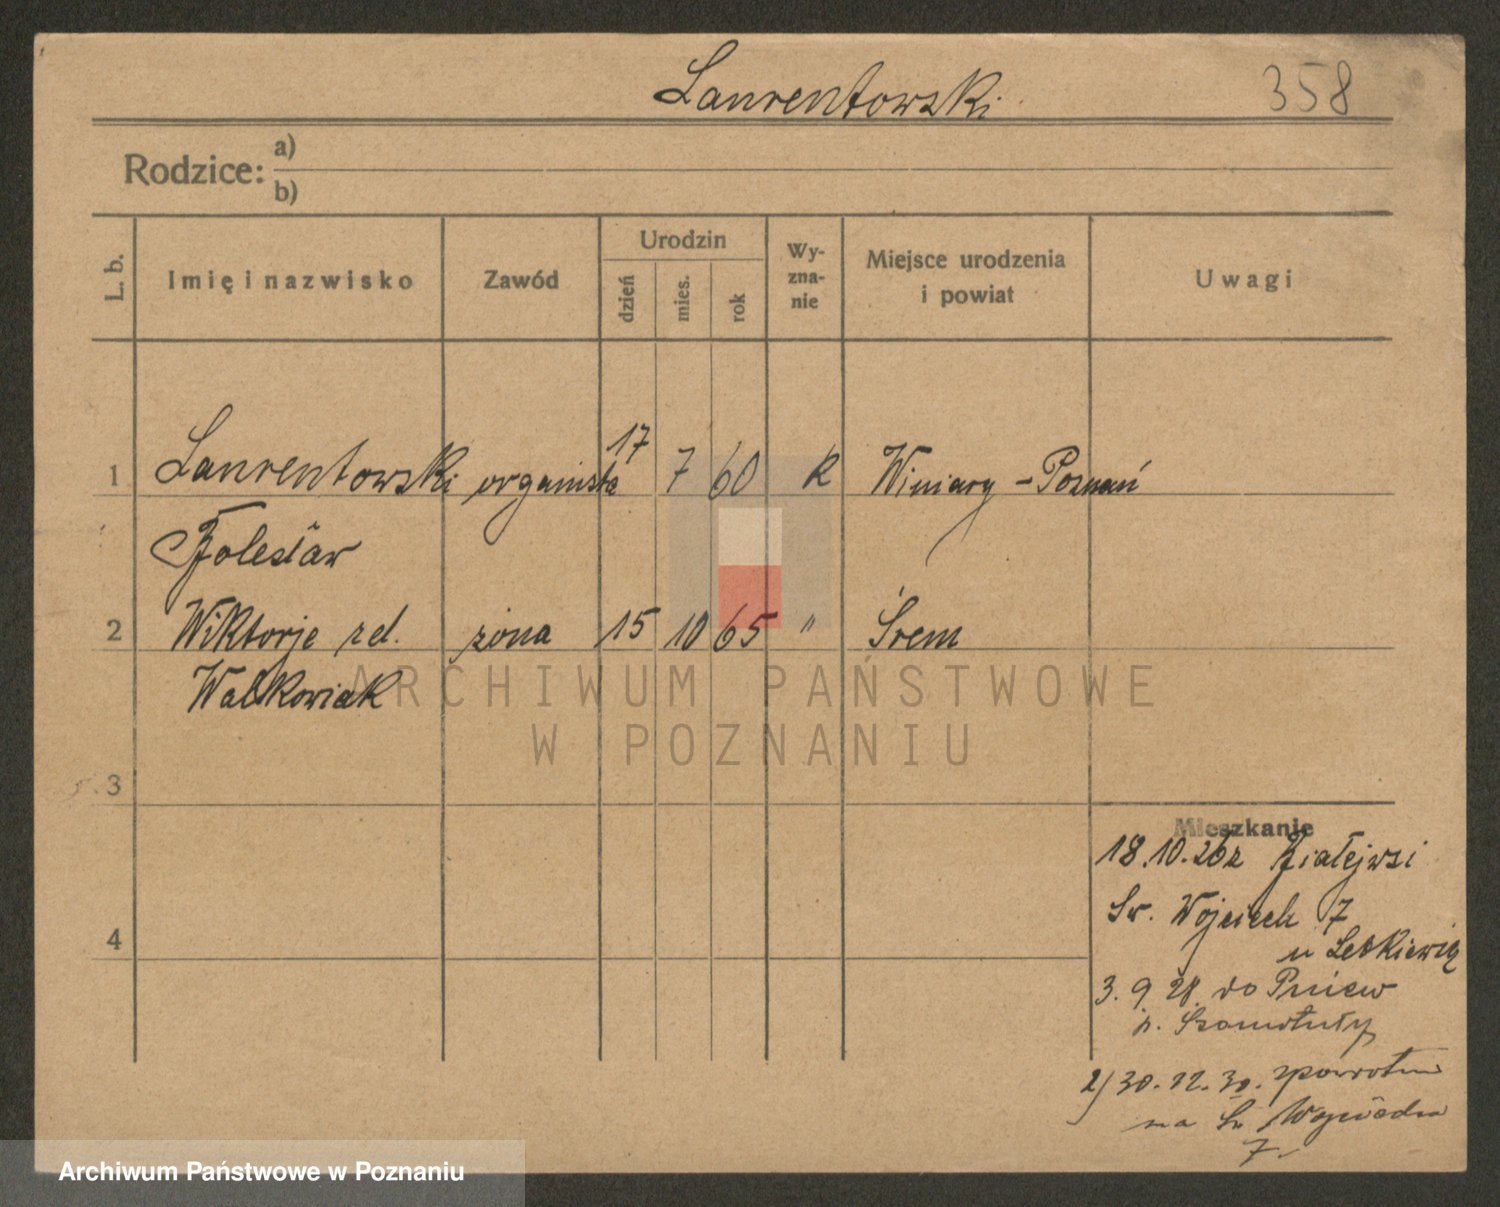 Laurentowski 358
Rodzice: a)
b)
L. b. Imię i nazwisko Zawód Urodzin dzień mies. rok Wyznanie Miejsce urodzenia i powiat Uwagi
1 Laurentowski organista 17 7 60 k Winiary - Poznań
Bolesław
2 Wiktorje rd. żona 15 10 65 " Śrem
Walkowiak
ARCHIWUM PAŃSTWOWE
W POZNANIU
3
4
Mieszkanie
18.10.26 z
Św. Wojciech 7
u
3. 9. 28. do Pniew
p. Szamotuły
2) 30. 12. 30. zpowrotem
na Św Wojciecha
7.
Archiwum Państwowe w Poznaniu